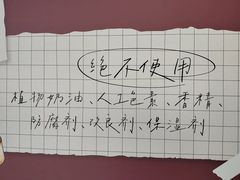 绝不使用
植物奶油、人工色素、香精、
防腐剂、改良剂、保湿剂